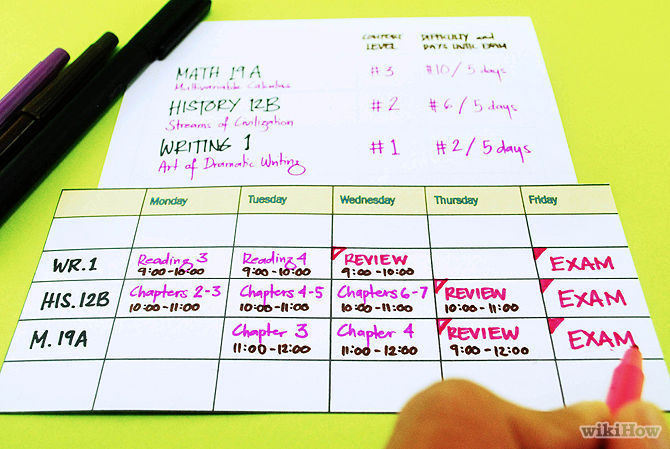 COMFORT DIFFICULTY and
LEVEL DAYS UNTIL EXAM
MATH 19A #3 #10/5 days
Multivariable Calculus
HISTORY 12B #2 #6/5 days
Streams of Civilization
WRITING 1 #1 #2/5 days
Art of Dramatic Writing
Monday Tuesday Wednesday Thursday Friday
WR.1 Reading 3 Reading 4 REVIEW EXAM
9:00-10:00 9:00-10:00 9:00-10:00
HIS.12B Chapters 2-3 Chapters 4-5 Chapters 6-7 REVIEW EXAM
10:00-11:00 10:00-11:00 10:00-11:00 10:00-11:00
M.19A Chapter 3 Chapter 4 REVIEW EXAM
11:00-12:00 11:00-12:00 9:00-12:00
wikiHow